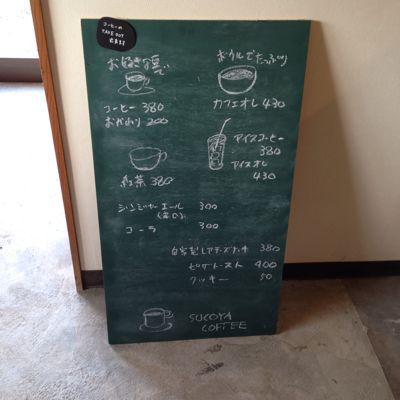 コーヒーの
TAKE OUT
出来ます
お好きな器で
コーヒー 380
おかわり 200
ボウルでたっぷり
カフェオレ 430
アイスコーヒー
380
アイスオレ
430
紅茶 380
ジンジャーエール 300
コーラ 300
自家製レアチーズケーキ 380
ピザトースト 400
クッキー 50
SUCOYA
COFFEE